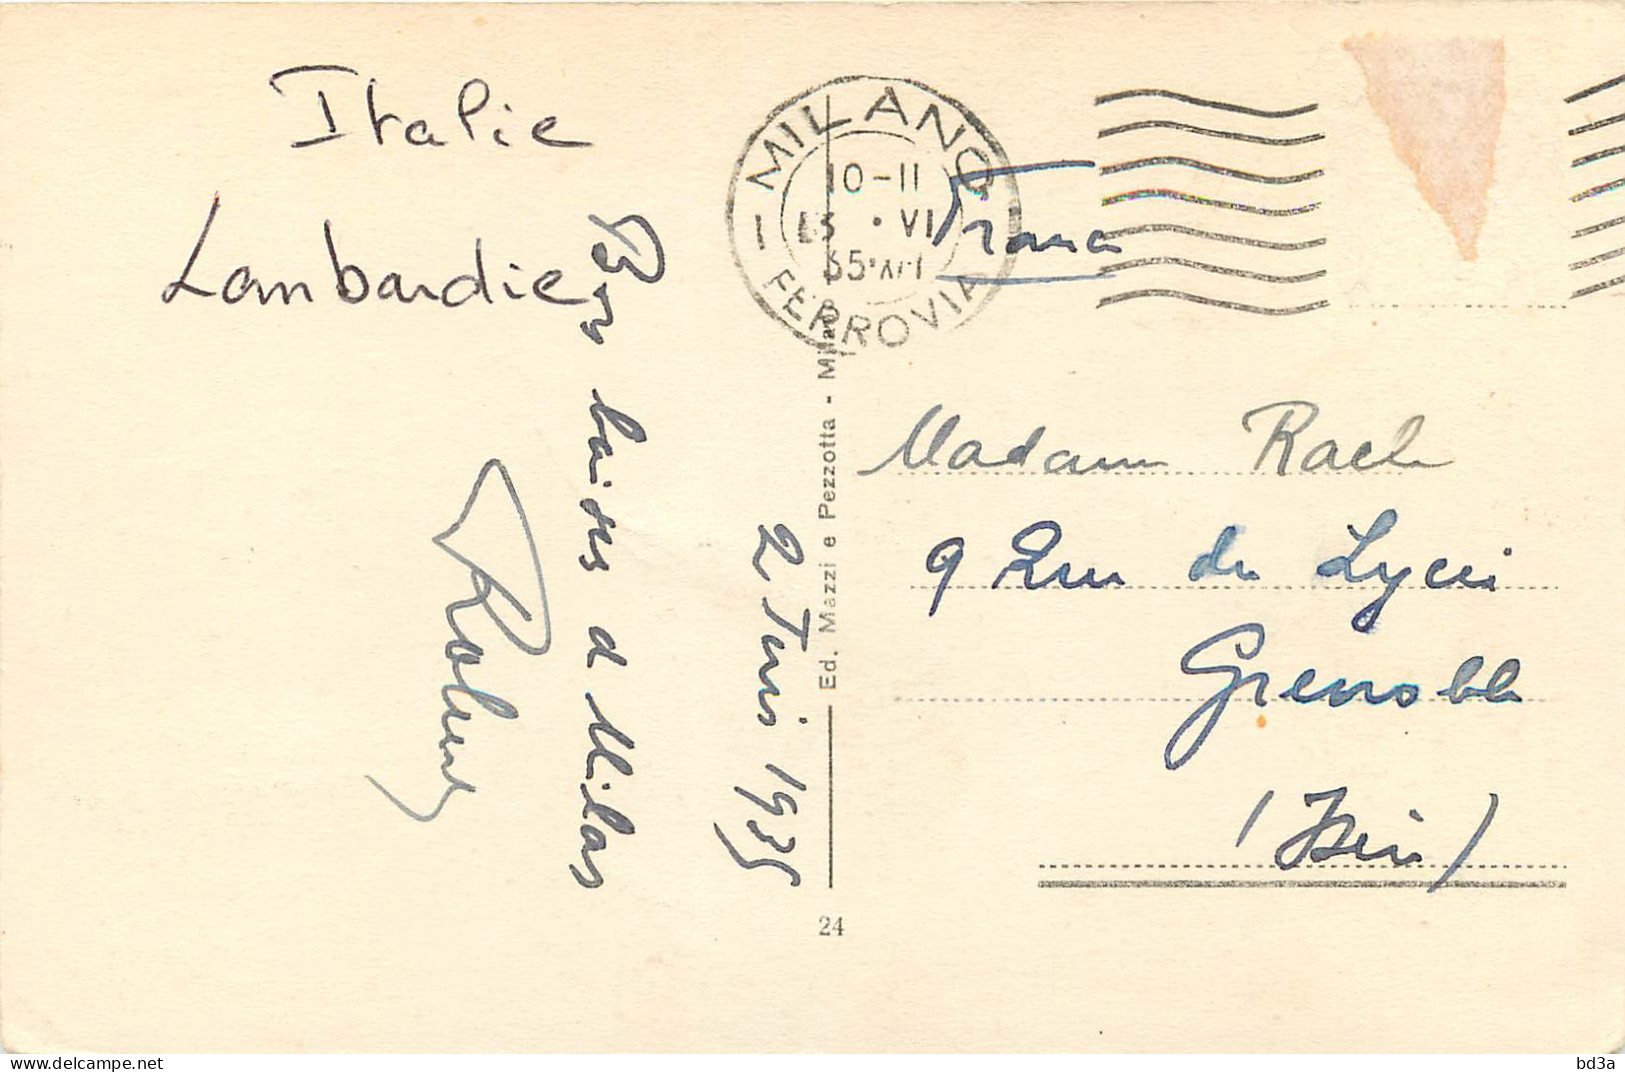 Italie
Lombardie
Bons baisers de Milan
2 Juin 1935
MILANO
10-11
VI
35·XIII
FERROVIA
France
Ed. Mazzi e Pezzotta - Milano
Madame
9 Rue du Lycée
Grenoble
(Isère)
24
bd3a